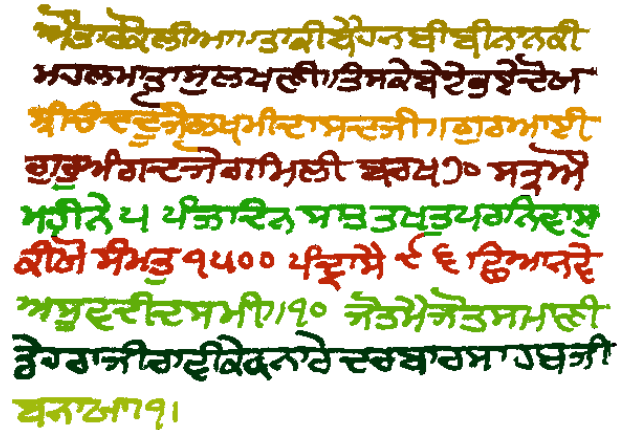 ਔਤਾਰ ਕੌਲੀਆ॥ ਤਾਕੀ ਭੈਹਨ ਬੀਬੀ ਨਾਨਕੀ
ਮਹਲ ਮਾਤਾ ਸੁਲਖਣੀ॥ ਤਿਸਕੇ ਬੇਟੇ ਹੁਏ ਦੋਖ
ਸ੍ਰੀ ਚੰਦ ਦੂਜੈ ਲਖਮੀ ਦਾਸ ਦਜੀ॥ ਗੁਰਆਈ
ਗੁਰੂ ਅੰਗਦ ਜੋਗ ਮਿਲੀ ਬਰਖ ੭੦ ਸਤ੍ਰ ਔ
ਮਹੀਨੇ ੫ ਪੰਜ ਦਿਨ ਸਤ ਤਖਤੁ ਪਰ ਨਿਵਾਸੁ
ਕੀਓ ਸੰਮਤੁ ੧੫੦੦ ਪੰਦ੍ਰਾਸੈ ੯੬ ਛਿਆਨਵੇ
ਅਸੂ ਵਦੀ ਦਸਮੀ॥੧੦ ਜੋਤ ਮੈ ਜੋਤ ਸਮਾਣੀ
ਡੇਹਰਾ ਜੀ ਰਾਵੀ ਕੇ ਕਨਾਰੇ ਦਰਬਾਰ ਸਾਹਬ ਜੀ
ਬਨਾਖਾ॥੧।